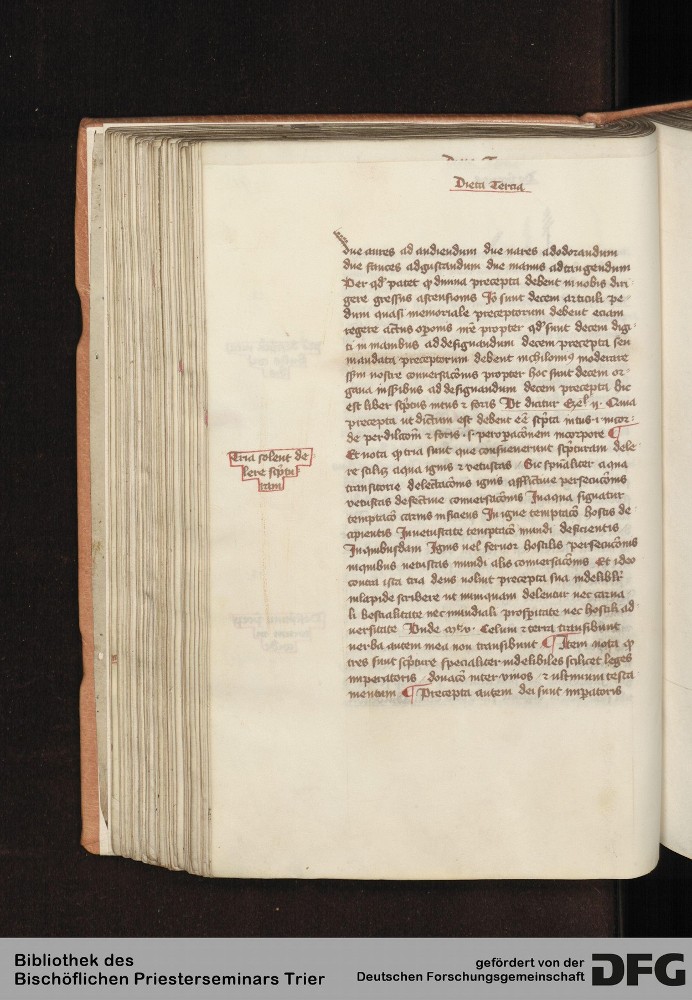 Dieta Tercia
due aures ad audiendum due nares adodorandum
due fauces adgustandum due manus adtangendum
Per qd' patet q diuina precepta debent in nobis diri
gere gressus ascensionis Jo sunt decem articuli pe
dum quasi memoriale preceptorum debent eciam
regere actus opois nre propter qd' sunt decem digi
ti in manibus ad designandum decem precepta seu
mandata preceptorum debent nichilomin9 moderare
ssm nostre conuersacois propter hoc sunt decem or
gana in ssibus ad designandum decem precepta hic
est liber sciptus intus z foris Vt dicitur Ezel ij. Cuncta
precepta ut dictum est debent ee scpta intus i incor
de per dilcoim z foris s peropacionem incorpore ¶
Et nota q tria sunt que consueuerunt scpturam dele
re scilicz aqua ignis z vetustas Sic spualiter aqua
transitorie delectacois ignis afflictiue persecucois
vetustas defectiue conuersacois Jn aqua figuratur
temptaco carnis inficiens Jn igne temptaco hostis de
cipientis Jn vetustate temptaco mundi deficientis
Jn quibusdam Jgnis uel feruor hostilis persecucois
in quibus vetustas mundialis conuersacois Et ideo
contra ista tria deus voluit precepta sua indelibilr
in lapide scribere ut numquam deleantur nec carna
li bestialitate nec mundiali prosperitate nec hostili ad
uersitate Vnde Celum z terra transibunt
verba autem mea non transibunt ¶ Jtem nota q
tres sunt scpture specialiter indelebiles scilicet leges
imperatoris donaco inter viuos z ultimum testa
mentum ¶ Precepta autem dei sunt imperatoris
Tria solent de
lere scptu
ram
Bibliothek des
Bischöflichen Priesterseminars Trier
gefördert von der
Deutschen Forschungsgemeinschaft
DFG